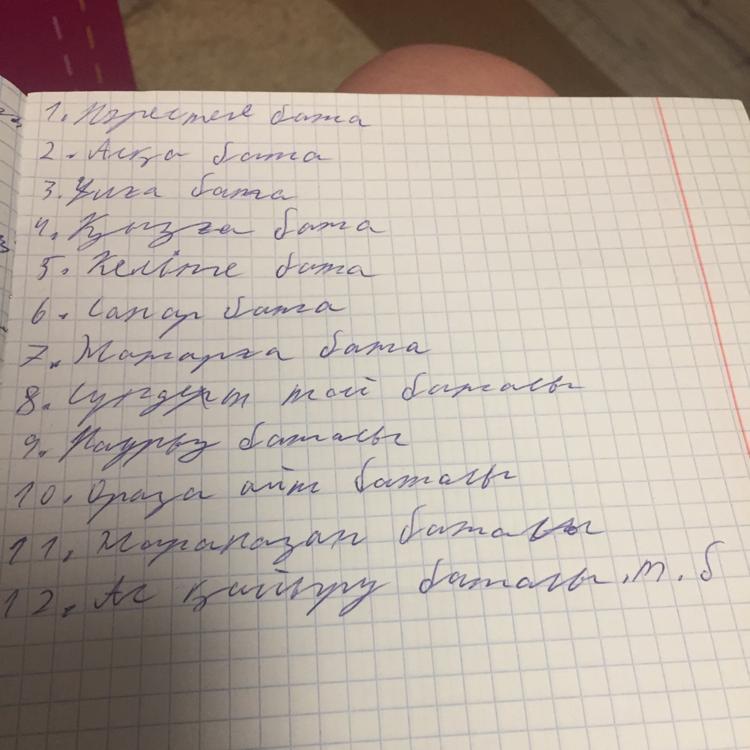 1. Нәрестеге бата
2. Асқа бата
3. Ұлға бата
4. Қызға бата
5. Келінге бата
6. Сапар бата
7. Жатарға бата
8. Сүндет той батасы
9. Наурыз батасы
10. Ораза айт батасы
11. Жарапазан батасы
12. Ас қайыру батасы.т.б